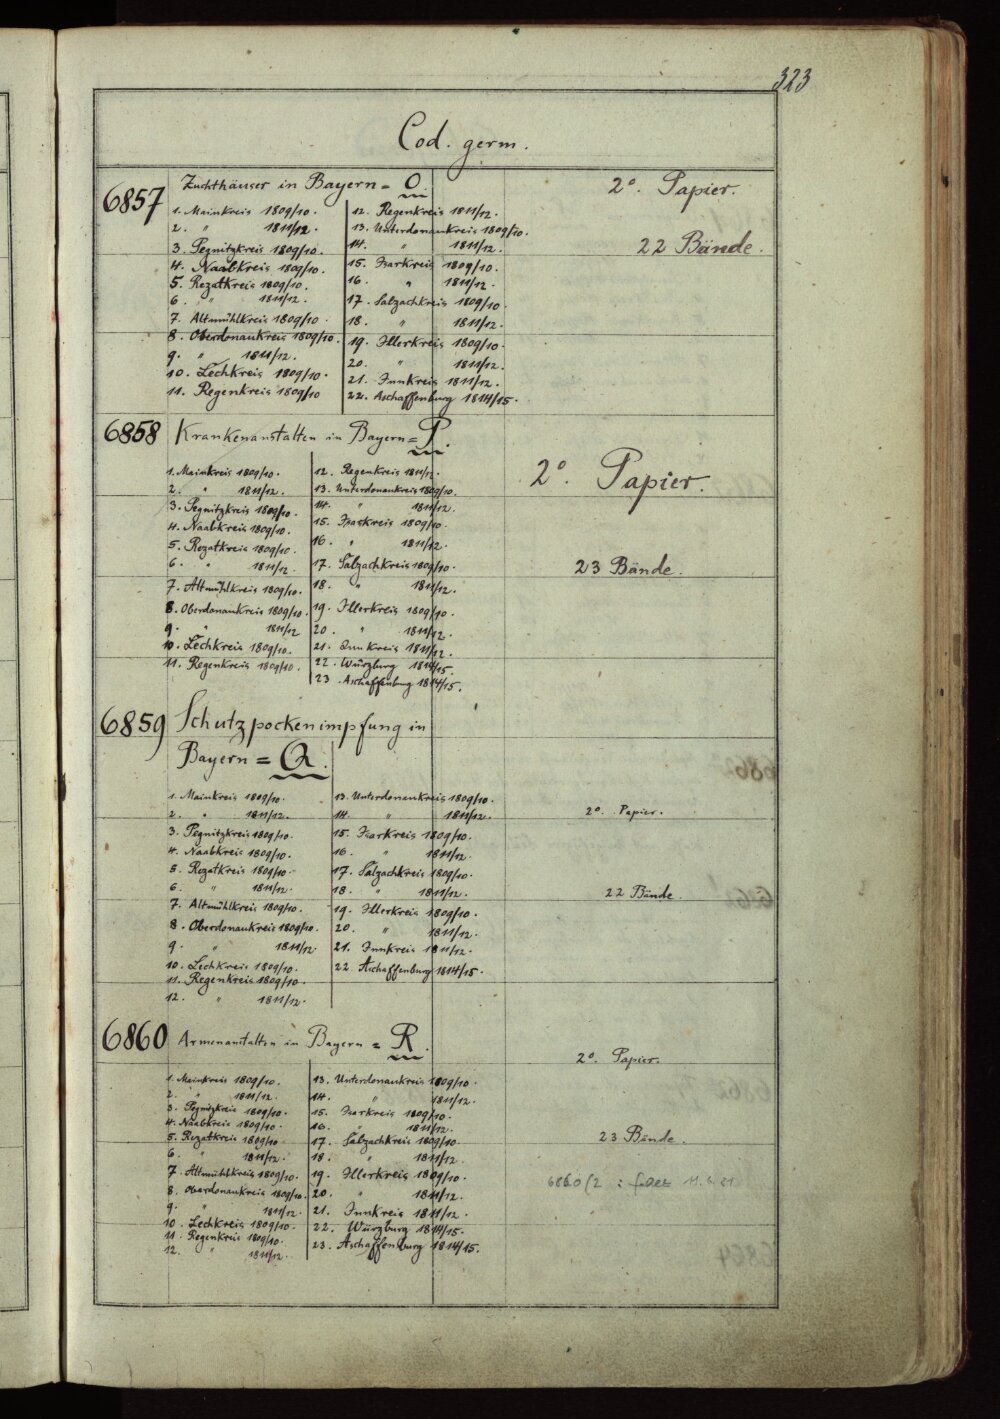 323
Cod. germ.
6857 Zuchthäuser in Bayern = O.
2°. Papier.
22 Bände.
1. Mainkreis 1809/10.
2. " 1811/12.
3. Pegnitzkreis 1809/10.
4. Naabkreis 1809/10.
5. Rezatkreis 1809/10.
6. " 1811/12.
7. Altmühlkreis 1809/10.
8. Oberdonaukreis 1809/10.
9. " 1811/12.
10. Lechkreis 1809/10.
11. Regenkreis 1809/10
12. Regenkreis 1811/12.
13. Unterdonaukreis 1809/10.
14. " 1811/12.
15. Isarkreis 1809/10.
16. " 1811/12.
17. Salzachkreis 1809/10.
18. " 1811/12.
19. Illerkreis 1809/10.
20. " 1811/12.
21. Innkreis 1811/12.
22. Aschaffenburg 1814/15.
6858 Krankenanstalten in Bayern = P.
2°. Papier.
23 Bände.
1. Mainkreis 1809/10.
2. " 1811/12.
3. Pegnitzkreis 1809/10.
4. Naabkreis 1809/10.
5. Rezatkreis 1809/10.
6. " 1811/12.
7. Altmühlkreis 1809/10.
8. Oberdonaukreis 1809/10.
9. " 1811/12
10. Lechkreis 1809/10.
11. Regenkreis 1809/10.
12. Regenkreis 1811/12.
13. Unterdonaukreis 1809/10.
14. " 1811/12.
15. Isarkreis 1809/10.
16. " 1811/12.
17. Salzachkreis 1809/10.
18. " 1811/12.
19. Illerkreis 1809/10.
20. " 1811/12.
21. Innkreis 1811/12.
22. Würzburg 1814/15.
23. Aschaffenburg 1814/15.
6859 Schutzpockenimpfung in
Bayern = Q.
2°. Papier.
22 Bände.
1. Mainkreis 1809/10.
2. " 1811/12.
3. Pegnitzkreis 1809/10.
4. Naabkreis 1809/10.
5. Rezatkreis 1809/10.
6. " 1811/12.
7. Altmühlkreis 1809/10.
8. Oberdonaukreis 1809/10.
9. " 1811/12.
10. Lechkreis 1809/10.
11. Regenkreis 1809/10.
12. " 1811/12.
13. Unterdonaukreis 1809/10.
14. " 1811/12.
15. Isarkreis 1809/10.
16. " 1811/12.
17. Salzachkreis 1809/10.
18. " 1811/12.
19. Illerkreis 1809/10.
20. " 1811/12.
21. Innkreis 1811/12.
22 Aschaffenburg 1814/15.
6860 Armenanstalten in Bayern = R.
2°. Papier.
23 Bände.
6860/2 :
1. Mainkreis 1809/10.
2. " 1811/12.
3. Pegnitzkreis 1809/10.
4. Naabkreis 1809/10.
5. Rezatkreis 1809/10
6. " 1811/12.
7. Altmühlkreis 1809/10.
8. Oberdonaukreis 1809/10.
9. " 1811/12.
10. Lechkreis 1809/10.
11. Regenkreis 1809/10.
12. " 1811/12.
13. Unterdonaukreis 1809/10.
14. " 1811/12.
15. Isarkreis 1809/10.
16. " 1811/12.
17. Salzachkreis 1809/10.
18. " 1811/12.
19. Illerkreis 1809/10.
20. " 1811/12.
21. Innkreis 1811/12.
22. Würzburg 1814/15.
23. Aschaffenburg 1814/15.